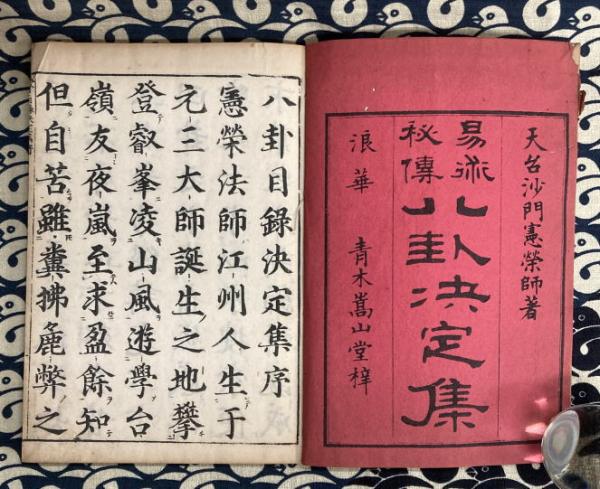 天台沙門憲榮師著
易術
秘傳
八卦决定集
浪華　青木嵩山堂梓
八卦目錄決定集序
憲榮法師江州人生于
元三大師誕生之地攀
登叡峯凌山風遊學台
嶺友夜嵐至求盈餘知
但自苦雖糞拂麁弊之